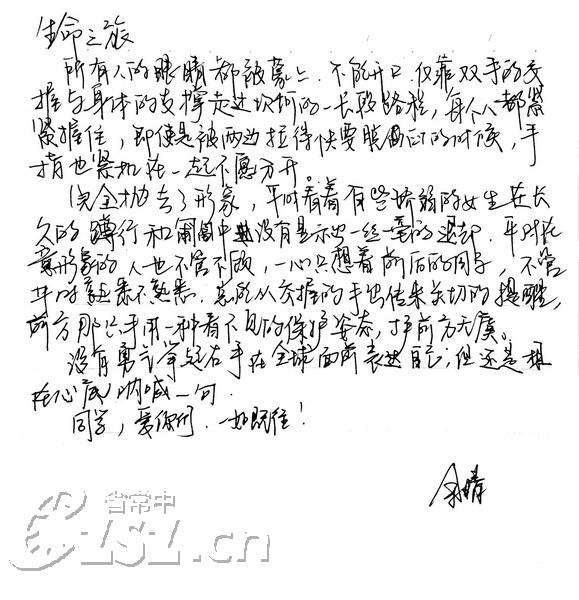 生命之旅
所有人的眼睛都被蒙上,不能开口,仅靠双手的交
握与身体的支撑走过坎坷的一长段路程,每个人都紧
紧握住,即便是被两边拉得快要脱臼的时候,手
指也紧扣在一起不愿分开。
完全抛去了形象,平时看着有些娇弱的女生在长
久的蹲行和匍匐中也没有显示出一丝一毫的退却,平时在
意形象的人也不管不顾,一心只想着前后的同学,不管
平时熟悉不熟悉,总能从交握的手出传来关切的提醒,
前方那只手用一种看不见的保护姿态,护前方无虞。
没有勇气举起右手在全班面前表达自己,但还是想
在心底呐喊一句.
同学,爱你们,一如既往!
晴
省常中
.cn